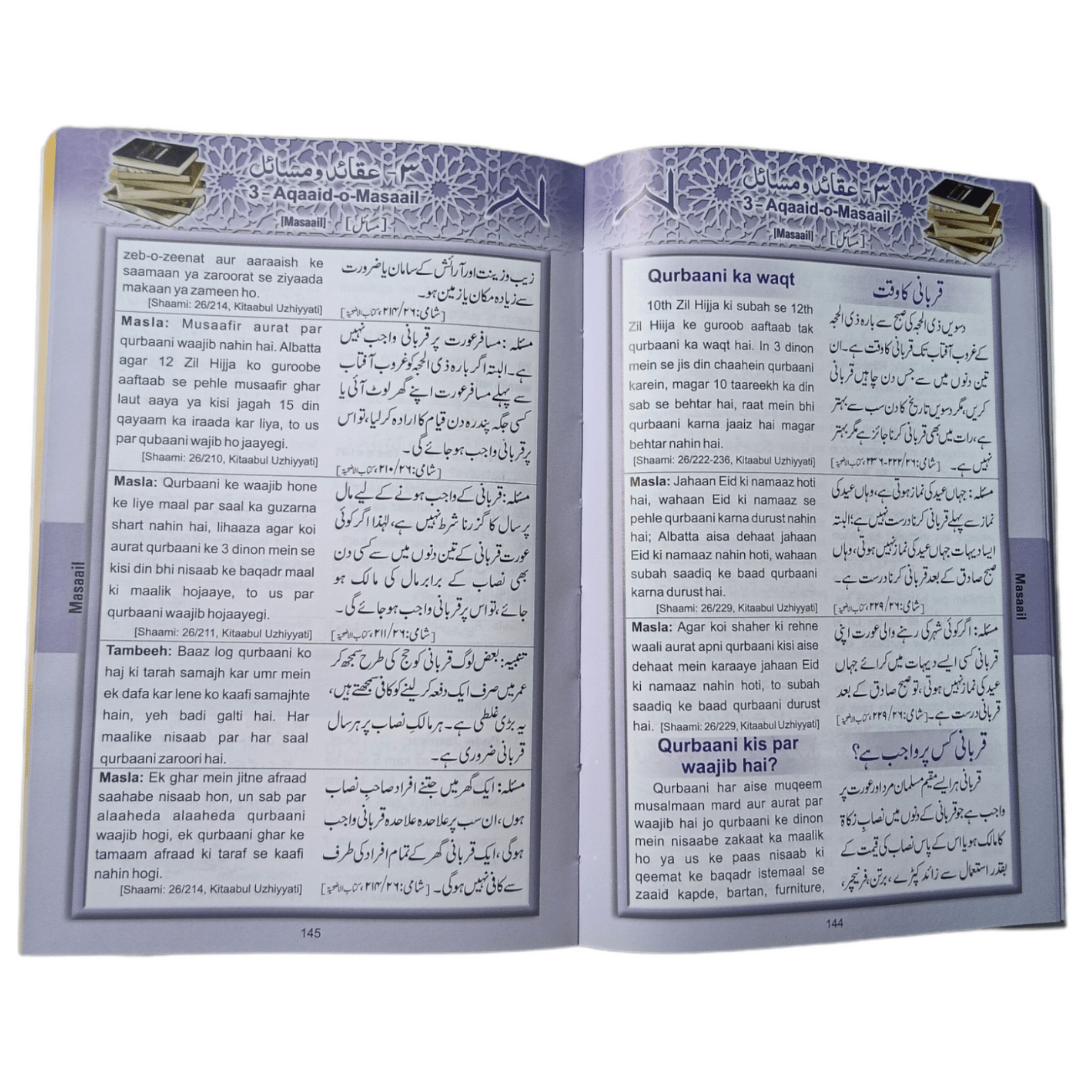 ۳- عقائد و مسائل
3 - Aqaaid-o-Masaail
[Masaail] [مسائل]
Qurbaani ka waqt
10th Zil Hijja ki subah se 12th
Zil Hiija ke guroob aaftaab tak
qurbaani ka waqt hai. In 3 dinon
mein se jis din chaahein qurbaani
karein, magar 10 taareekh ka din
sab se behtar hai, raat mein bhi
qurbaani karna jaaiz hai magar
behtar nahin hai.
[Shaami: 26/222-236, Kitaabul Uzhiyyati]
Masla: Jahaan Eid ki namaaz hoti
hai, wahaan Eid ki namaaz se
pehle qurbaani karna durust nahin
hai; Albatta aisa dehaat jahaan
Eid ki namaaz nahin hoti, wahaan
subah saadiq ke baad qurbaani
karna durust hai.
[Shaami: 26/229, Kitaabul Uzhiyyati]
Masla: Agar koi shaher ki rehne
waali aurat apni qurbani kisi aise
dehaat mein karaaye jahaan Eid
ki namaaz nahin hoti, to subah
saadiq ke baad qurbaani durust
hai. [Shaami: 26/229, Kitaabul Uzhiyyati]
Qurbaani kis par
waajib hai?
Qurbaani har aise muqeem
musalmaan mard aur aurat par
waajib hai jo qurbaani ke dinon
mein nisaabe zakaat ka maalik
ho ya us ke paas nisaab ki
qeemat ke baqadr istemaal se
zaaid kapde, bartan, furniture,
قربانی کا وقت
دسویں ذی الحجہ کی صبح سے بارہ ذی الحجہ
کے غروب آفتاب تک قربانی کا وقت ہے۔ ان
تین دنوں میں سے جس دن چاہیں قربانی
کریں، مگر دسویں تاریخ کا دن سب سے بہتر
ہے، رات میں بھی قربانی کرنا جائز ہے مگر بہتر
نہیں ہے۔ [شامی: ۲۶/۲۲۲-۲۳۶، کتاب الاضحیۃ]
مسئلہ: جہاں عید کی نماز ہوتی ہے، وہاں عید کی
نماز سے پہلے قربانی کرنا درست نہیں ہے؛ البتہ
ایسا دیہات جہاں عید کی نماز نہیں ہوتی، وہاں
صبح صادق کے بعد قربانی کرنا درست ہے۔
[شامی: ۲۶/۲۲۹، کتاب الاضحیۃ]
مسئلہ: اگر کوئی شہر کی رہنے والی عورت اپنی
قربانی کسی ایسے دیہات میں کرائے جہاں
عید کی نماز نہیں ہوتی، تو صبح صادق کے بعد
قربانی درست ہے۔ [شامی: ۲۶/۲۲۹، کتاب الاضحیۃ]
قربانی کس پر واجب ہے؟
قربانی ہر ایسے مقیم مسلمان مرد اور عورت پر
واجب ہے جو قربانی کے دنوں میں نصاب زکاۃ
کا مالک ہو یا اس کے پاس نصاب کی قیمت کے
بقدر استعمال سے زائد کپڑے، برتن، فرنیچر،
Masaail
144
۳- عقائد و مسائل
3 - Aqaaid-o-Masaail
[Masaail] [مسائل]
zeb-o-zeenat aur aaraaish ke
saamaan ya zaroorat se ziyaada
makaan ya zameen ho.
[Shaami: 26/214, Kitaabul Uzhiyyati]
Masla: Musaafir aurat par
qurbaani waajib nahin hai. Albatta
agar 12 Zil Hijja ko guroobe
aaftaab se pehle musaafir ghar
laut aaya ya kisi jagah 15 din
qayaam ka iraada kar liya, to us
par qubaani wajib ho jaayegi.
[Shaami: 26/210, Kitaabul Uzhiyyati]
Masla: Qurbaani ke waajib hone
ke liye maal par saal ka guzarna
shart nahin hai, lihaaza agar koi
aurat qurbaani ke 3 dinon mein se
kisi din bhi nisaab ke baqadr maal
ki maalik hojaaye, to us par
qurbaani waajib hojaayegi.
[Shaami: 26/211, Kitaabul Uzhiyyati]
Tambeeh: Baaz log qurbaani ko
haj ki tarah samajh kar umr mein
ek dafa kar lene ko kaafi samajhte
hain, yeh badi galti hai. Har
maalike nisaab par har saal
qurbaani zaroori hai.
Masla: Ek ghar mein jitne afraad
saahabe nisaab hon, un sab par
alaaheda alaaheda qurbaani
waajib hogi, ek qurbaani ghar ke
tamaam afraad ki taraf se kaafi
nahin hogi.
[Shaami: 26/214, Kitaabul Uzhiyyati]
زیب و زینت اور آرائش کے سامان یا ضرورت
سے زیادہ مکان یا زمین ہو۔
[شامی: ۲۶/۲۱۴، کتاب الاضحیۃ]
مسئلہ: مسافر عورت پر قربانی واجب نہیں
ہے۔ البتہ اگر بارہ ذی الحجہ کو غروب آفتاب
سے پہلے مسافر عورت اپنے گھر لوٹ آئی یا
کسی جگہ پندرہ دن قیام کا ارادہ کر لیا، تو اس
پر قربانی واجب ہو جائے گی۔
[شامی: ۲۶/۲۱۰، کتاب الاضحیۃ]
مسئلہ: قربانی کے واجب ہونے کے لیے مال
پر سال کا گزرنا شرط نہیں ہے، لہٰذا اگر کوئی
عورت قربانی کے تین دنوں میں سے کسی دن
بھی نصاب کے برابر مال کی مالک ہو
جائے، تو اس پر قربانی واجب ہو جائے گی۔
[شامی: ۲۶/۲۱۱، کتاب الاضحیۃ]
تنبیہ: بعض لوگ قربانی کو حج کی طرح سمجھ کر
عمر میں صرف ایک دفعہ کر لینے کو کافی سمجھتے ہیں،
یہ بڑی غلطی ہے۔ ہر مالک نصاب پر ہر سال
قربانی ضروری ہے۔
مسئلہ: ایک گھر میں جتنے افراد صاحب نصاب
ہوں، ان سب پر علاحدہ علاحدہ قربانی واجب
ہوگی، ایک قربانی گھر کے تمام افراد کی طرف
سے کافی نہیں ہوگی۔ [شامی: ۲۶/۲۱۴، کتاب الاضحیۃ]
Masaail
145